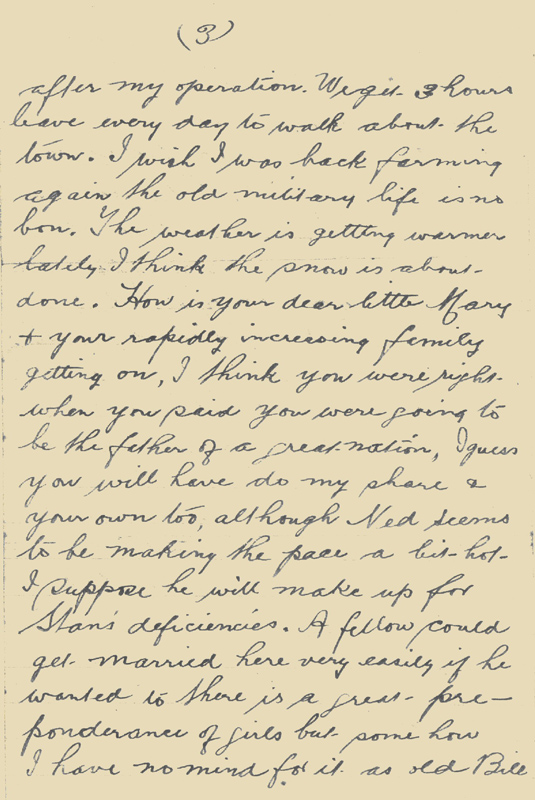 (3)
after my operation. We get 3 hours
leave every day to walk about the
town. I wish I was back farming
again the old military life is no
bon. The weather is getting warmer
lately I think the snow is about
done. How is your dear little Mary
+ your rapidly increasing family
getting on, I think you were right
when you said you were going to
be the father of a great nation, I guess
you will have do my share &
your own too, although Ned seems
to be making the pace a bit hot.
I suppose he will make up for
Stan's deficiencies. A fellow could
get married here very easily if he
wanted to there is a great pre-
ponderance of girls but some how
I have no mind for it as old Bill